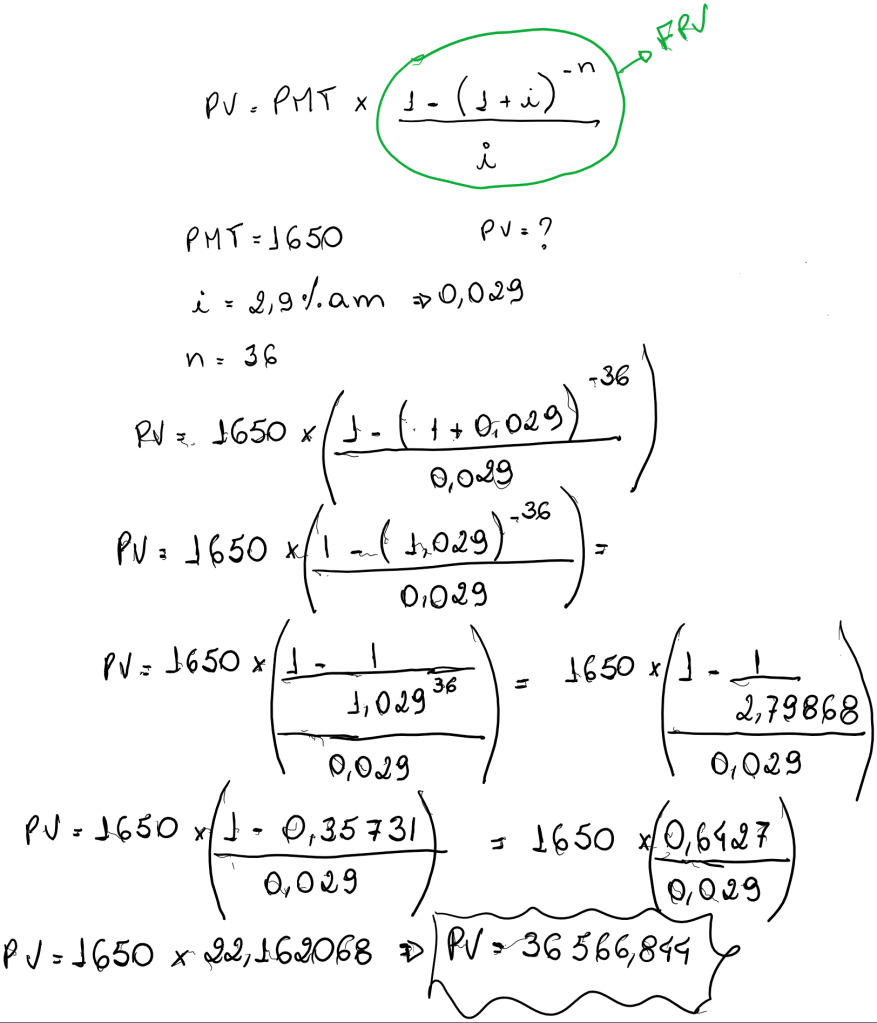 FRV
PV = PMT × (1 - (1 + i)^-n) / i
PMT = 1650 PV = ?
i = 2,9% am ⇒ 0,029
n = 36
PV = 1650 × ((1 - (1 + 0,029)^-36) / 0,029)
PV = 1650 × ((1 - (1,029)^-36) / 0,029) =
PV = 1650 × ((1 - 1 / 1,029^36) / 0,029) = 1650 × ((1 - 1 / 2,79868) / 0,029)
PV = 1650 × ((1 - 0,35731) / 0,029) = 1650 × (0,6427 / 0,029)
PV = 1650 × 22,162068 ⇒ PV = 36 566,844